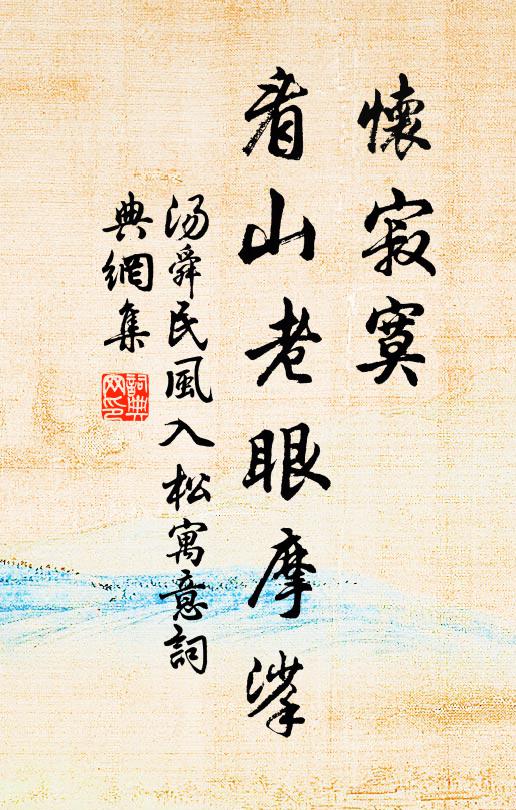 懷寂寞
看山老眼摩挲
汤舜民風入松寓意詞
典網集
詞典網印